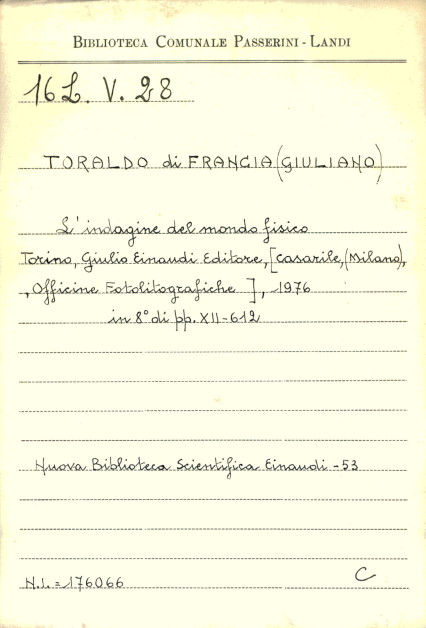 BIBLIOTECA COMUNALE PASSERINI - LANDI
16L. V. 28
TORALDO di FRANCIA (GIULIANO)
L'indagine del mondo fisico
Torino, Giulio Einaudi Editore, [Casarile, (Milano),
, Officine Fotolitografiche ], 1976
in 8° di pp. XII-612
Nuova Biblioteca Scientifica Einaudi - 53
N.I. = 176066
C